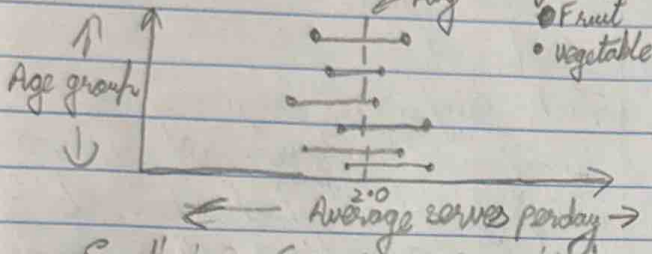 Fruit
vegetable
Age group
2.0
Average serves perday